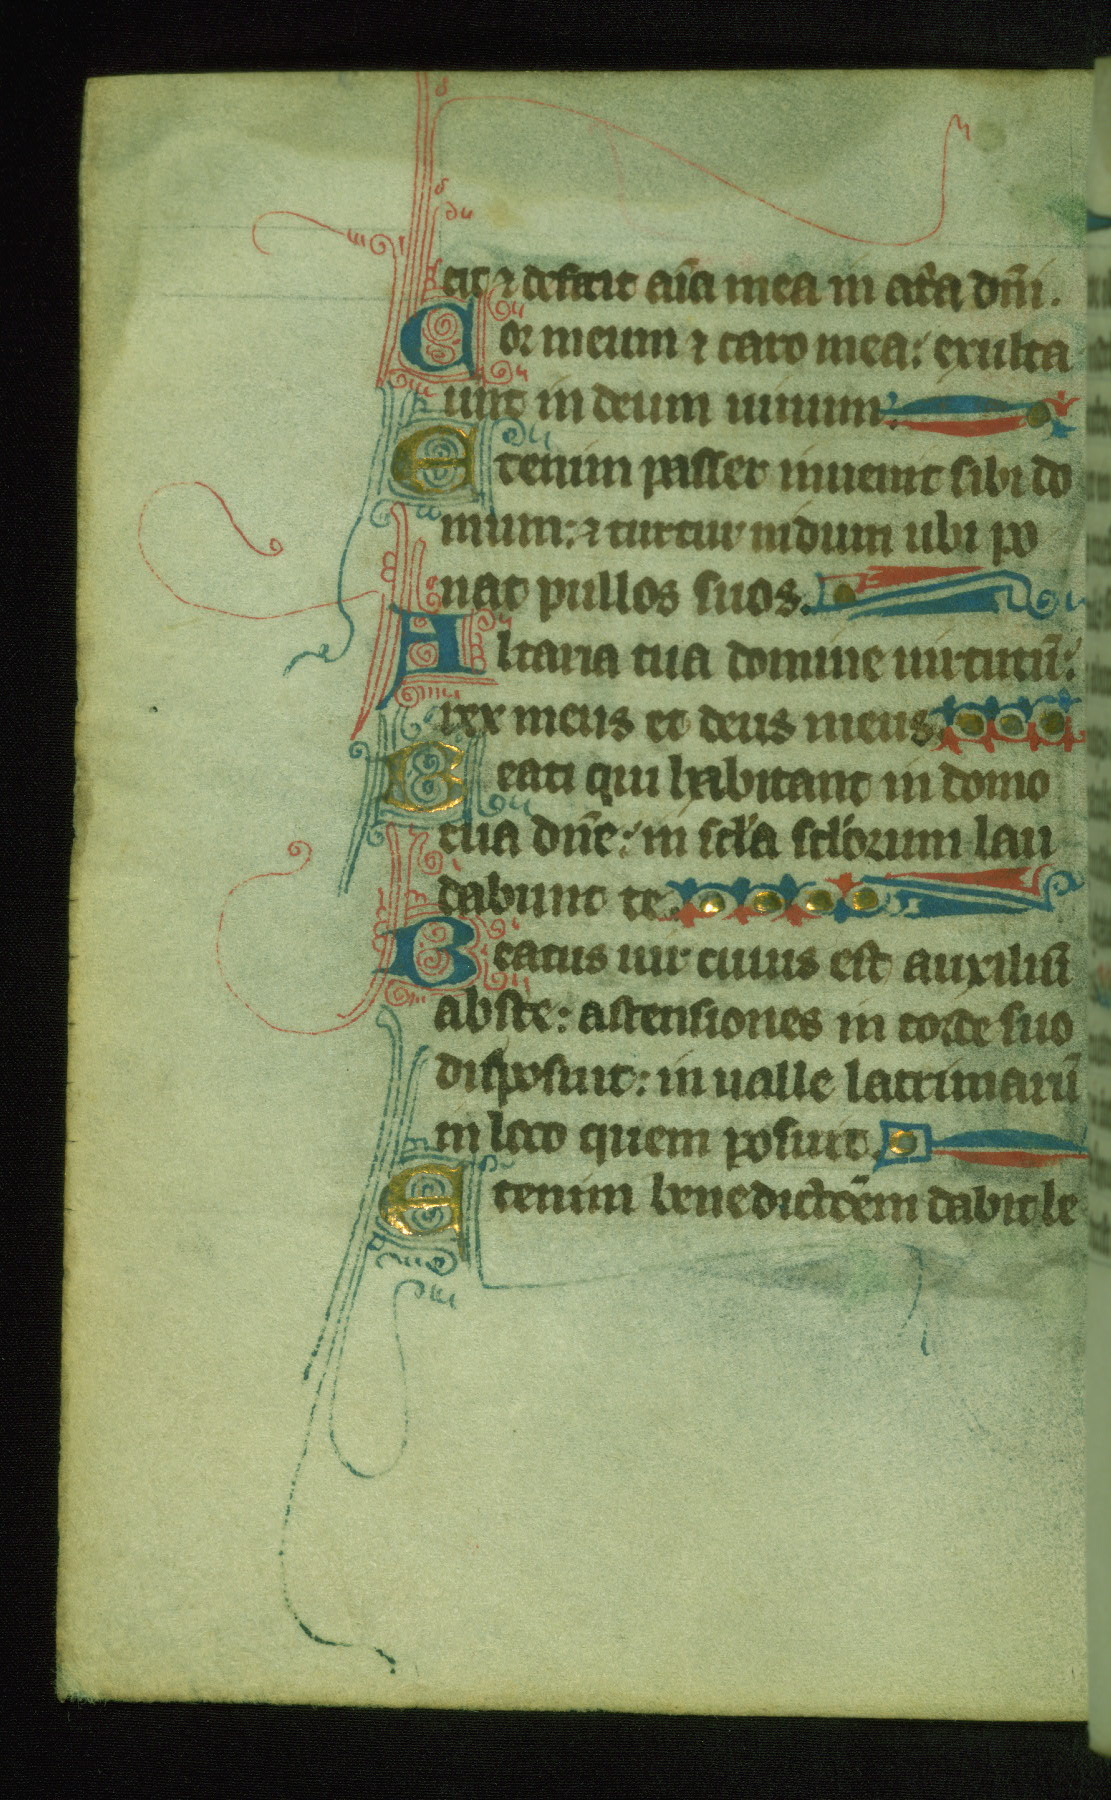 cit ⁊ deficit aīa mea in at̾a dn̄i.
Cor meum ⁊ caro mea: exulta
uūt in deum uiuum:
Etenim passer inuenit sibi do
mum: ⁊ turtur nidum ubi po
nat pullos suos.
Altaria tua domine uirtutū:
rex meus et deus meus.
Beati qui habitant in domo
tua dn̄e: in scl̄a scl̄orum lau
dabunt te.
Beatus uir cuius est auxiliū
abste: ascensiones in corde suo
disposuit: in ualle lacrimarū
in loco quem posuit.
Etenim benedictōem dabit le